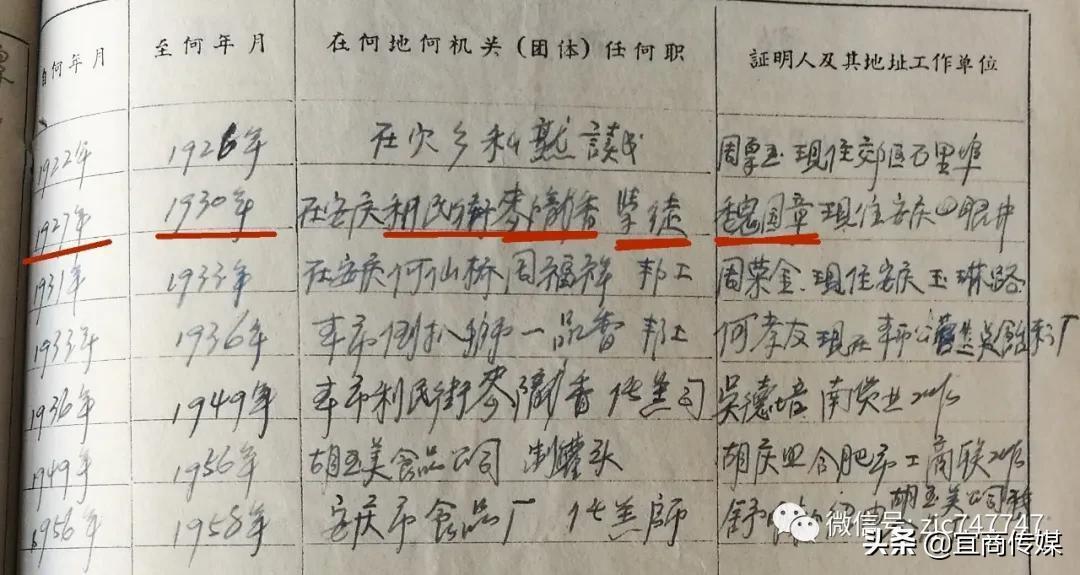 自何年月 至何年月 在何地何机关(团体)任何职 証明人及其地址工作单位
1922年 1926年 在 乡私塾读 周 玉 现住郊区百里埠
1927年 1930年 在安庆利民街麥陇香 学徒 魏国章 现住安庆四眼井
1931年 1933年 在安庆 何仙桥 周福祥 邦工 周荣金 现住安庆玉琳路
1933年 1936年 本市倒扒狮 一品香 邦工 何孝友 现在本市公
1936年 1949年 本市利民街麥陇香 吴德培 南货业
1949年 1956年 胡玉美食品公司 制罐头 胡庆 合肥市工商联
1956年 1958年 安庆市食品厂 师 舒 胡玉美公司
微信号:zjc747747
头条@宜商传媒